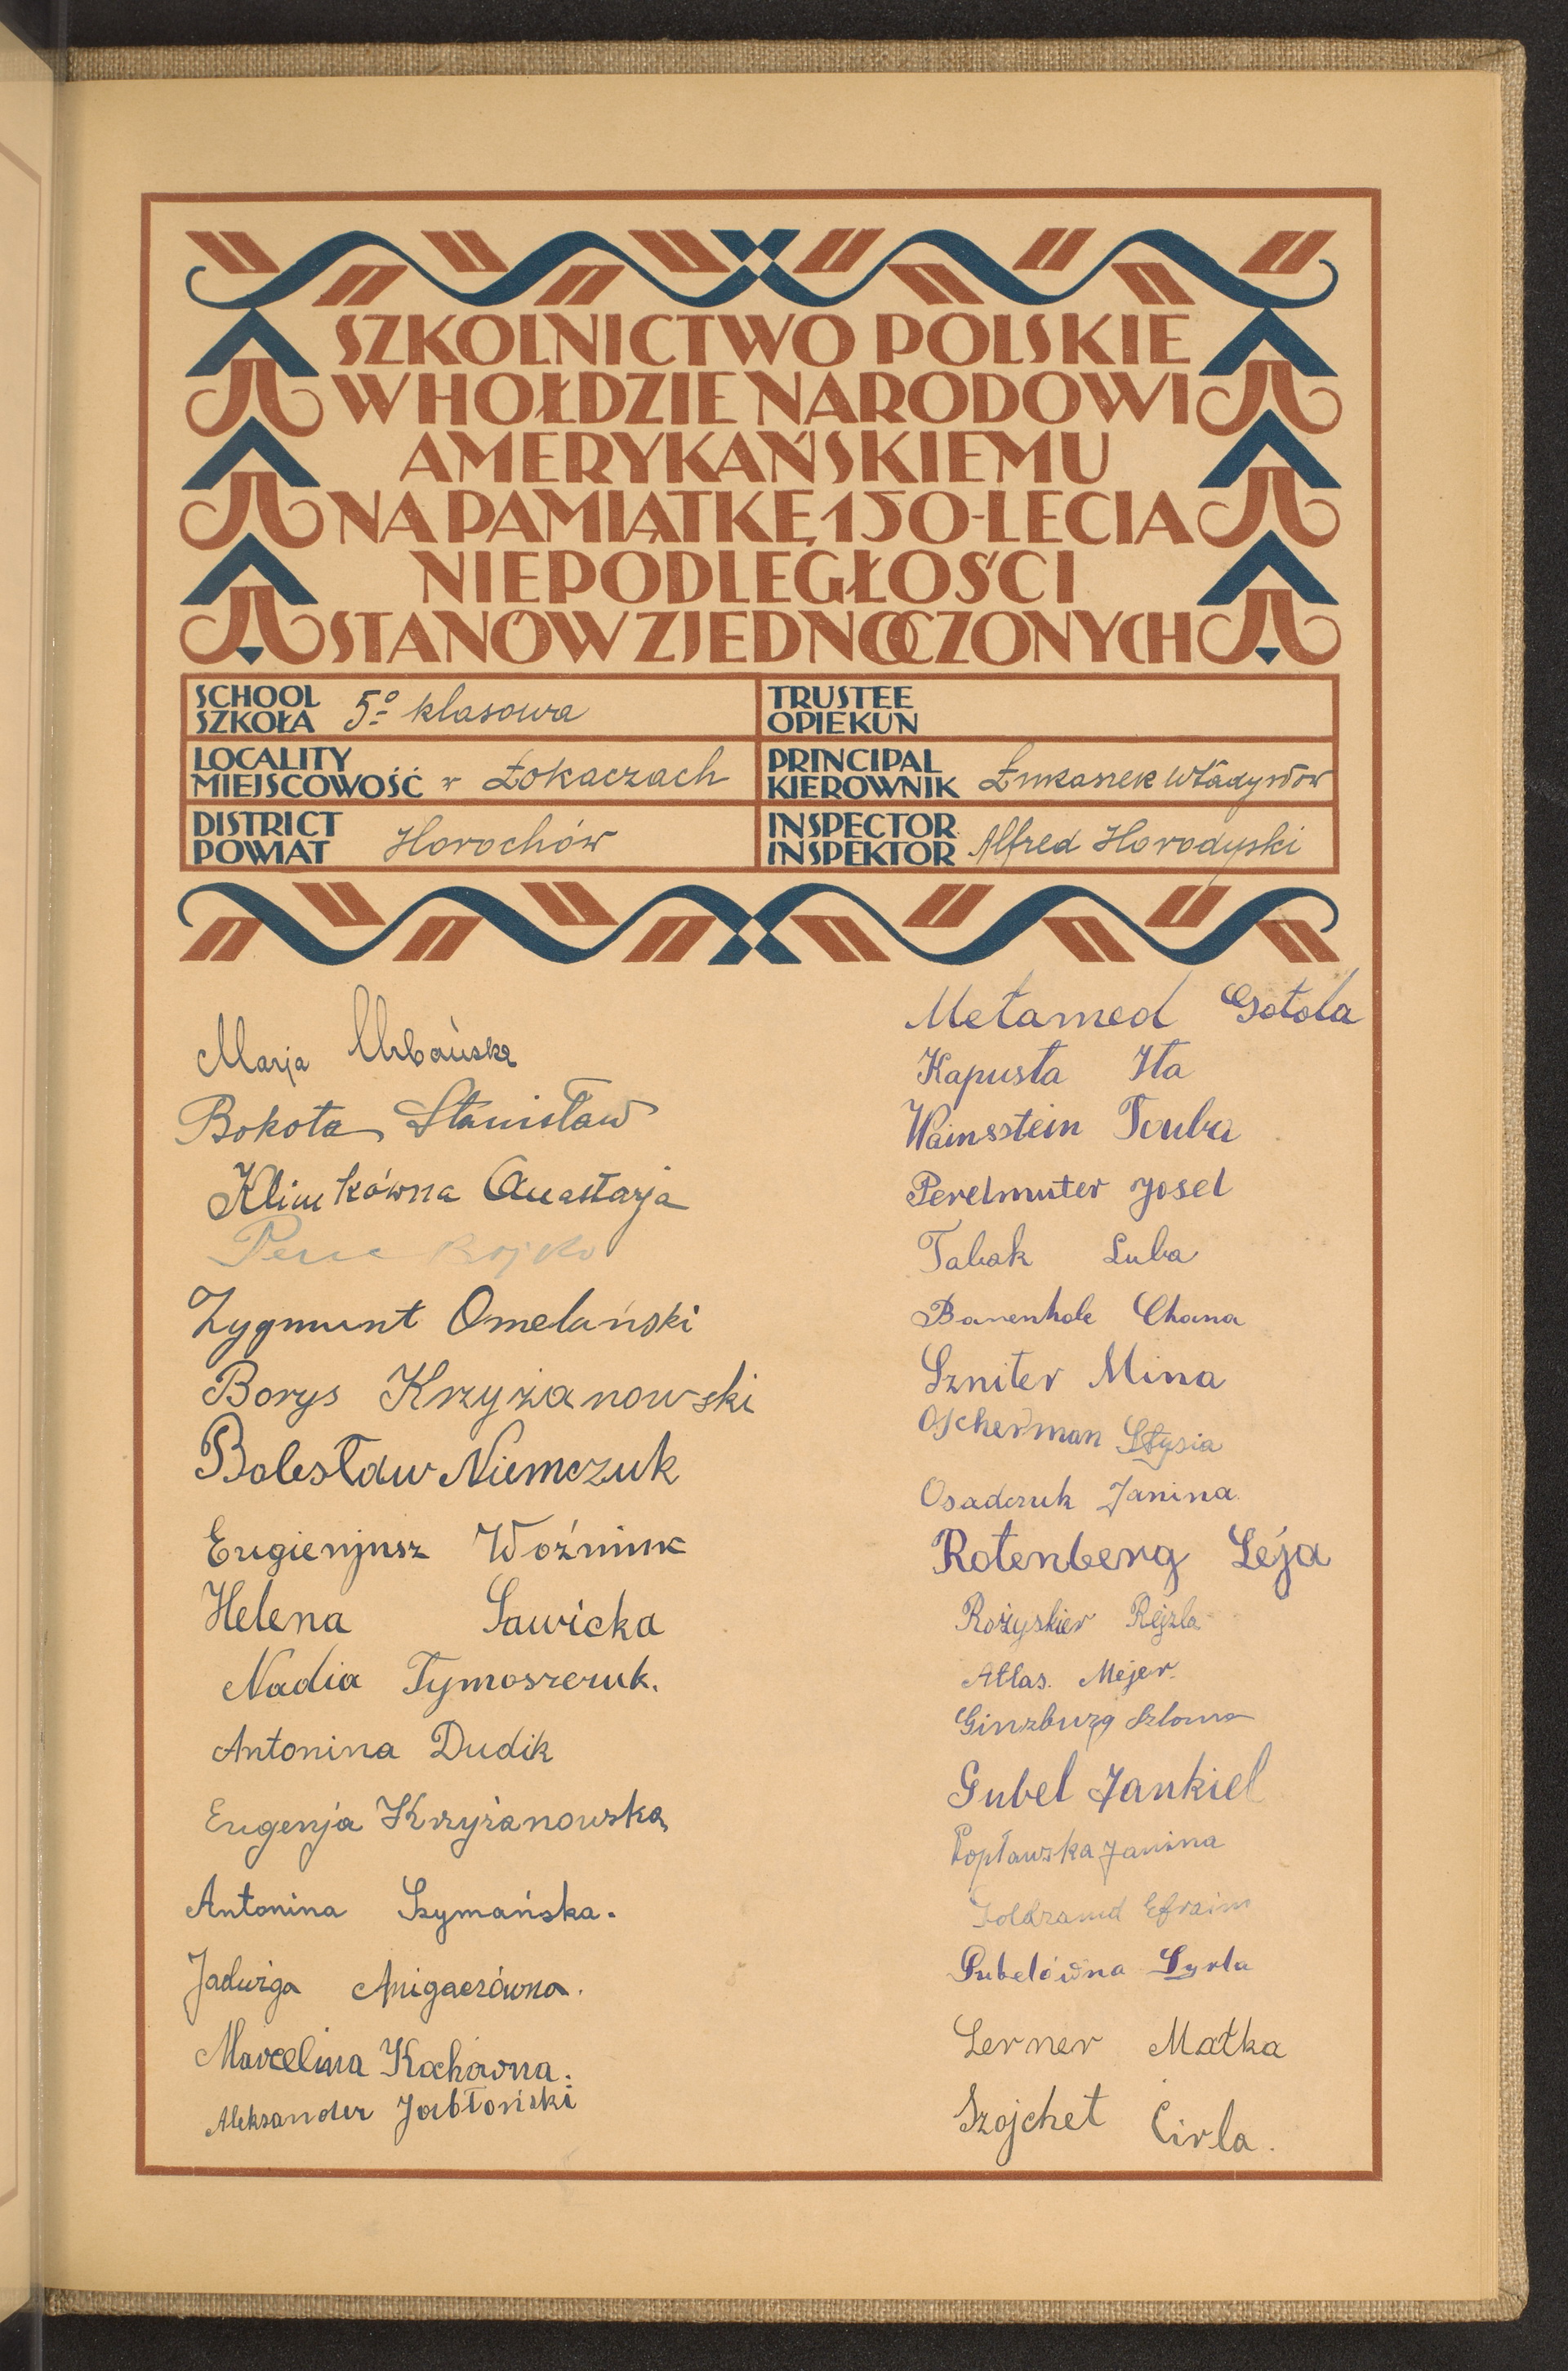 SZKOLNICTWO POLSKIE
W HOŁDZIE NARODOWI
AMERYKAŃSKIEMU
NA PAMIĄTKĘ 150-LECIA
NIEPODLEGŁOŚCI
STANÓW ZJEDNOCZONYCH
SCHOOL
SZKOŁA 5º klasowa
TRUSTEE
OPIEKUN
LOCALITY
MIEJSCOWOŚĆ w Łokaczach
PRINCIPAL
KIEROWNIK Łukasnek
DISTRICT
POWIAT Horochów
INSPECTOR
INSPEKTOR Alfred Horodyski
Marja Urbańska
Bokota Stanisław
Klimkówna Anastazja
Bojko
Zygmunt Omelański
Borys Krzyżanowski
Bolesław Niemczuk
Eugienjusz Woźniuk
Helena Sawicka
Nadia Tymoszczuk.
Antonina Dudik
Eugenja Krzyżanowska
Antonina Szymańska.
Jadwiga Anigaczówna.
Marcelina Kochówna.
Aleksander Jabłoński
Metamed Gotola
Kapusta Ita
Wainsstein Touba
Perelmuter Josel
Tabak Luba
Chana
Szniter Mina
Oscherman
Osadczuk Janina.
Rotenberg Leja
Rożyskier Rejzla
Atlas. Mejer.
Ginzburg Szloma
Gubel Jankiel
Popławska Janina
Efraim
Gubelówna Syrla
Lerner Matka
Szojchet Cirla.